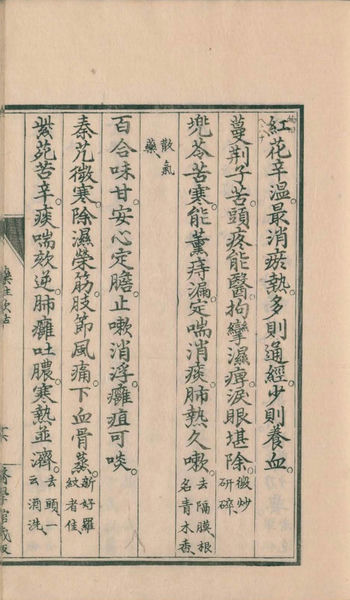 紅花辛溫最消瘀熱多則通經少則養血
蔓荆子苦頭疼能醫拘攣濕痺淚眼堪除微炒研碎
兠苓苦寒能薰痔漏定喘消痰肺熱久嗽去隔膜根名青木香散氣藥
百合味甘安心定膽止嗽消浮癰疽可啖
秦艽微寒除濕榮筋肢節風痛下血骨蒸新好羅紋者佳
紫菀苦辛痰喘欬逆肺癰吐膿寒熱並濟去頭一云酒洗